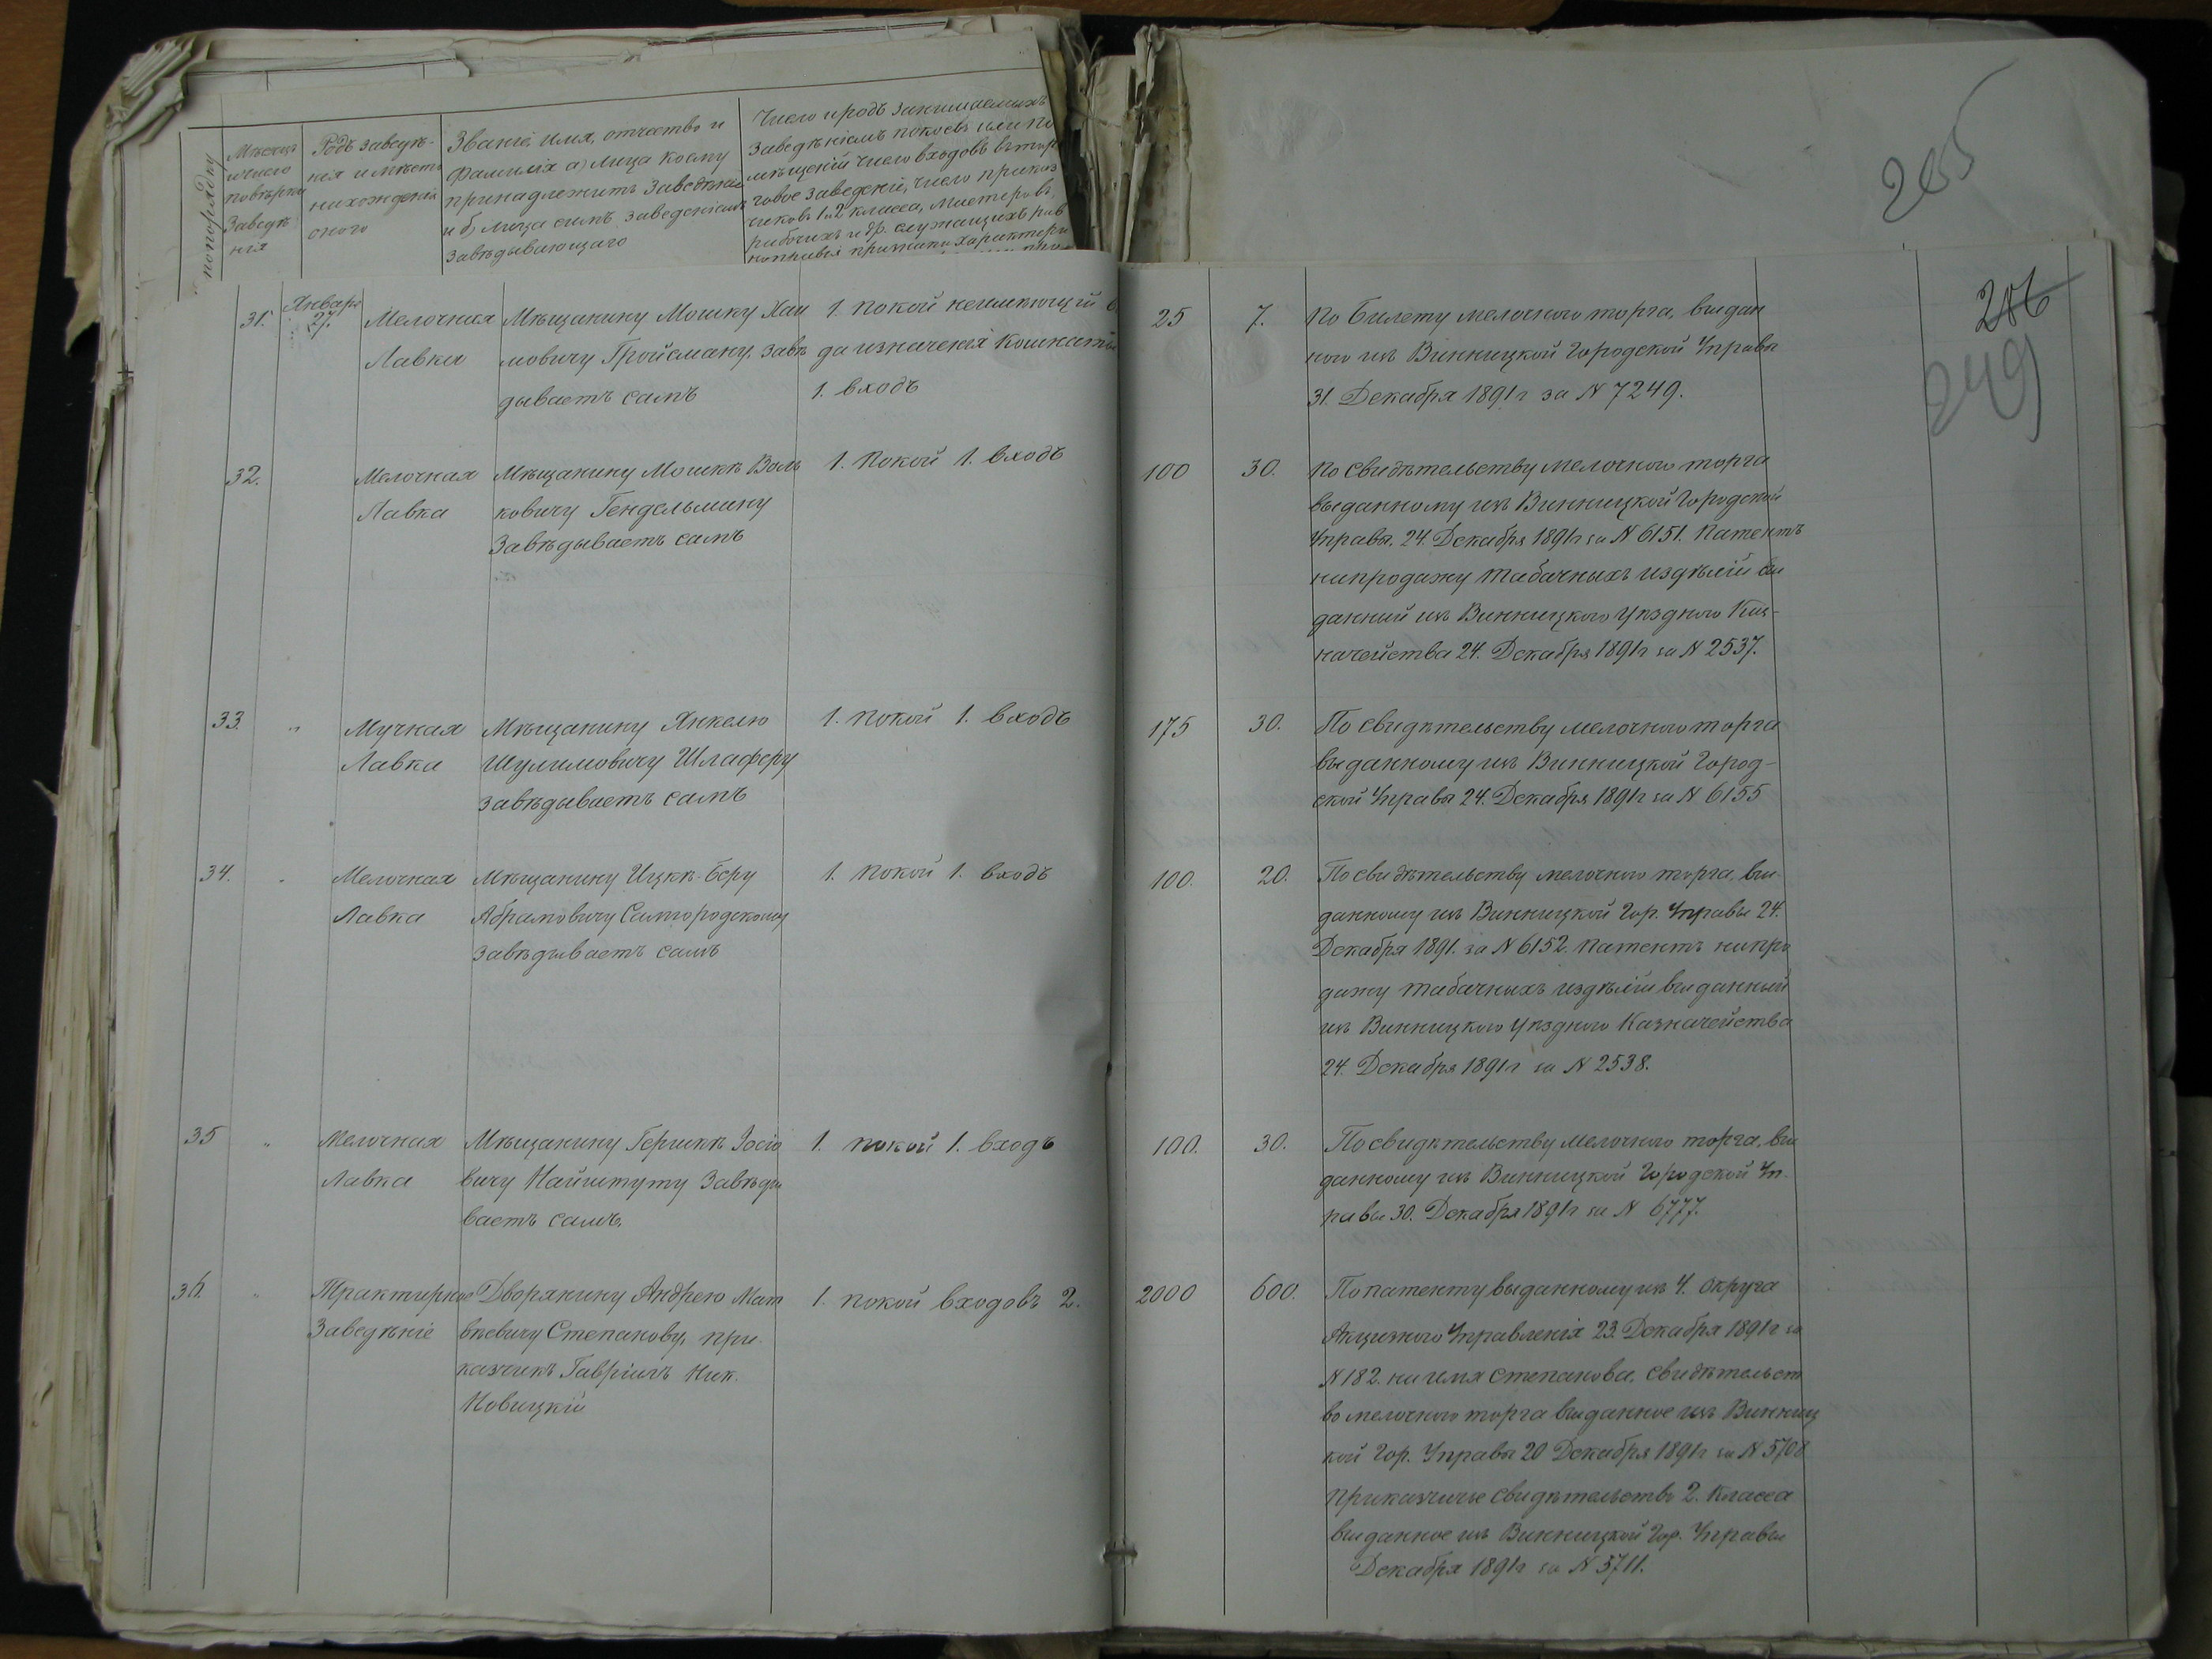 205
попорядку
Мѣсяцъ
и число
повѣрки
Заведѣ
нія
Родъ заведѣ-
нія и мѣсто
нахожденія
оного
Званіе, имя, отчество и
фамилія а) лица коему
принадлежитъ заведѣніе
и б) лица симъ заведеніемъ
завѣдывающаго
Число и родъ занимаемыхъ
заведѣніемъ покоевъ или по
мѣщеній число входовъ въ тор
говое заведеніе, число приказ
чиковъ 1 и 2 класса, мастеровъ,
рабочихъ и др. служащихъ рав
206
249
31.
Января
27.
Мелочная
Лавка
Мѣщанину Мошку Хаи
мовичу Гройсману, завѣ
дываетъ самъ
1. покой неимѣющій
да изначенія комнаты
1. входъ
25
7.
По билету мелочного торга, выдан
ного изъ Винницкой Городской Управы
31. Декабря 1891 г за N 7249.
32.
Мелочная
Лавка
Мѣщанину Мошкѣ Воль
ковичу Гендельману
Завѣдываетъ самъ
1. покой 1. входъ
100
30.
По свидѣтельству мелочного торга
выданному изъ Винницкой Городской
Управы, 24. Декабря 1891 г за N 6151. Патентъ
на продажу табачныхъ издѣлій вы
данный изъ Винницкого Уѣздного Каз-
начейства 24. Декабря 1891 г за N 2537.
33.
"
Мучная
Лавка
Мѣщанину Янкелю
Шулимовичу Шлаферу
завѣдываетъ самъ
1. покой 1. входъ
175
30.
По свидѣтельству мелочного торга
выданному изъ Винницкой Город-
ской Управы 24. Декабря 1891 г за N 6155
34.
"
Мелочная
Лавка
Мѣщанину Ицкѣ-Беру
Абрамовичу Самгородскому
завѣдываетъ самъ
1. покой 1. входъ
100.
20.
По свидѣтельству мелочного торга, вы-
данному изъ Винницкой Гор. Управы 24.
Декабря 1891. за N 6152. Патентъ на про
дажу табачныхъ издѣліи выданный
изъ Винницкого Уѣздного Казначейства
24. Декабря 1891 г за N 2538.
35
"
Мелочная
Лавка
Мѣщанину Гершкѣ Іосіо
вичу Найштуту Завѣды
ваетъ самъ.
1. покой 1. входъ
100.
30.
По свидѣтельству мелочного торга, вы
данному изъ Винницкой Городской Уп-
равы 30. Декабря 1891 г за N 6777.
36.
"
Трактирное
Заведѣніе
Дворянину Андрею Мат
вѣевичу Степанову, при-
казчикъ Гавріилъ Ник.
Новицкій
1. покой входовъ 2.
2000
600.
По патенту выданному изъ 4. Округа
Акцизного Управленія 23. Декабря 1891 г за
N 182. на имя Степанова, свидѣтельст
во мелочного торга выданное изъ Винниц
кой Гор. Управы 20 Декабря 1891 г за N 5708
Приказчичье свидѣтельство 2. класса
выданное изъ Винницкой Гор. Управы
Декабря 1891 г за N 5711.